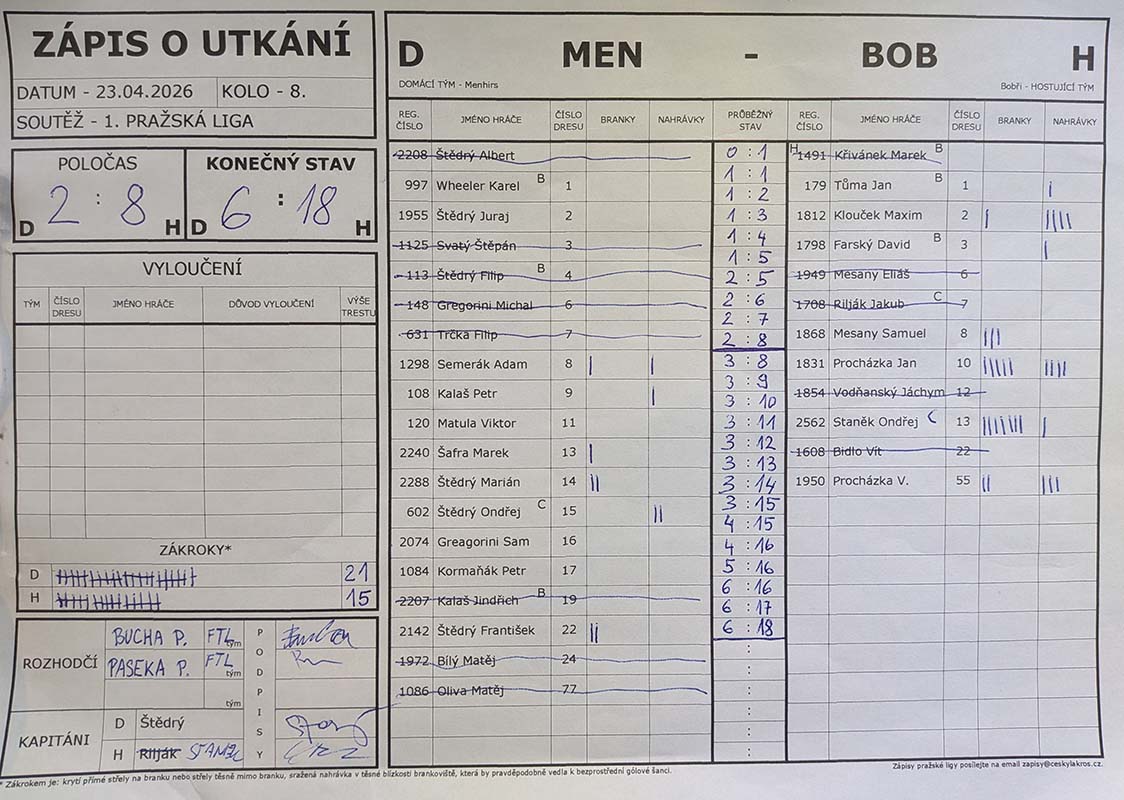 ZÁPIS O UTKÁNÍ
DATUM - 23.04.2026 KOLO - 8.
SOUTĚŽ - 1. PRAŽSKÁ LIGA
POLOČAS KONEČNÝ STAV
D 2 : 8 H D 6 : 18 H
VYLOUČENÍ
TÝM ČÍSLO DRESU JMÉNO HRÁČE DŮVOD VYLOUČENÍ VÝŠE TRESTU
ZÁKROKY*
D 21
H 15
ROZHODČÍ
BUCHA P. FTL tým
PASEKA P. FTL tým
tým
PODPISY
KAPITÁNI
D Štědrý
H Rilják STANĚK
D MEN - BOB H
DOMÁCÍ TÝM - Menhirs Bobři - HOSTUJÍCÍ TÝM
REG. ČÍSLO JMÉNO HRÁČE ČÍSLO DRESU BRANKY NAHRÁVKY PRŮBĚŽNÝ STAV REG. ČÍSLO JMÉNO HRÁČE ČÍSLO DRESU BRANKY NAHRÁVKY
2208 Štědrý Albert
997 Wheeler Karel B 1
1955 Štědrý Juraj 2
1125 Svatý Štěpán 3
113 Štědrý Filip B 4
148 Gregorini Michal 6
631 Trčka Filip 7
1298 Semerák Adam 8 | |
108 Kalaš Petr 9 |
120 Matula Viktor 11
2240 Šafra Marek 13 |
2288 Štědrý Marián 14 ||
602 Štědrý Ondřej C 15 ||
2074 Greagorini Sam 16
1084 Kormaňák Petr 17
2207 Kalaš Jindřich B 19
2142 Štědrý František 22 ||
1972 Bílý Matěj 24
1086 Oliva Matěj 77
0 : 1
1 : 1
1 : 2
1 : 3
1 : 4
1 : 5
2 : 5
2 : 6
2 : 7
2 : 8
3 : 8
3 : 9
3 : 10
3 : 11
3 : 12
3 : 13
3 : 14
3 : 15
4 : 15
4 : 16
5 : 16
6 : 16
6 : 17
6 : 18
:
:
:
:
:
:
H 1491 Křivánek Marek B
179 Tůma Jan B 1 |
1812 Klouček Maxim 2 | ||||
1798 Farský David B 3 |
1949 Mesany Eliáš 6
1708 Rilják Jakub C 7
1868 Mesany Samuel 8 |||
1831 Procházka Jan 10 ||||| ||||
1854 Vodňanský Jáchym 12
2562 Staněk Ondřej C 13 ||||||| |
1608 Bidlo Vít 22
1950 Procházka V. 55 || |||
* Zákrokem je: krytí přímé střely na branku nebo střely těsně mimo branku, sražená nahrávka v těsné blízkosti brankoviště, která by pravděpodobně vedla k bezprostřední gólové šanci.
Zápisy pražské ligy posílejte na email zapisy@ceskylakros.cz.